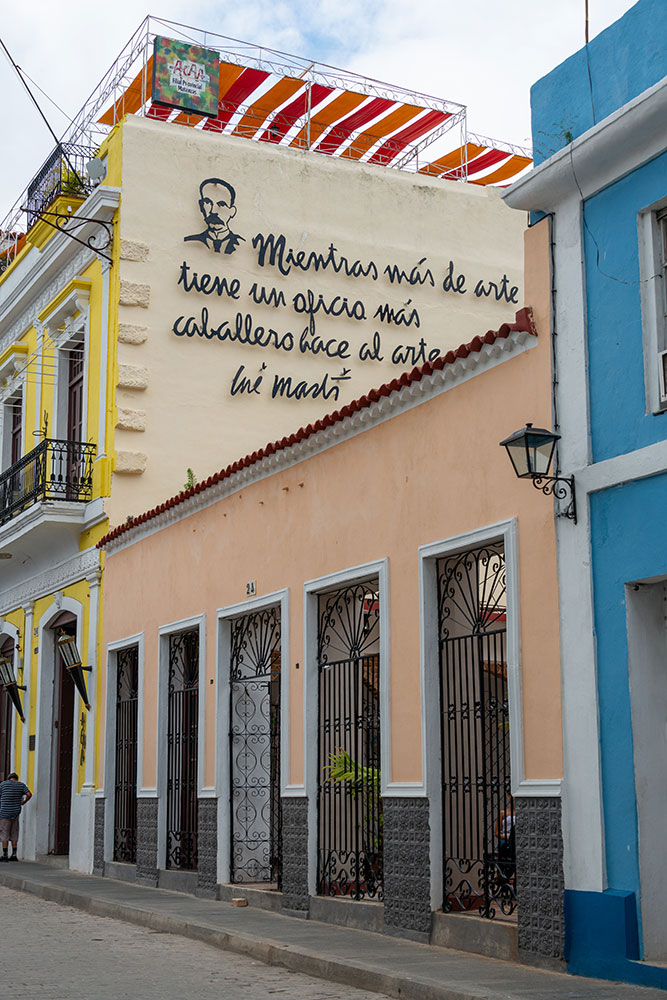 ACAA
Filial Provincial
Matanzas
Mientras más de arte
tiene un oficio más
caballero hace al arte
José Martí
24